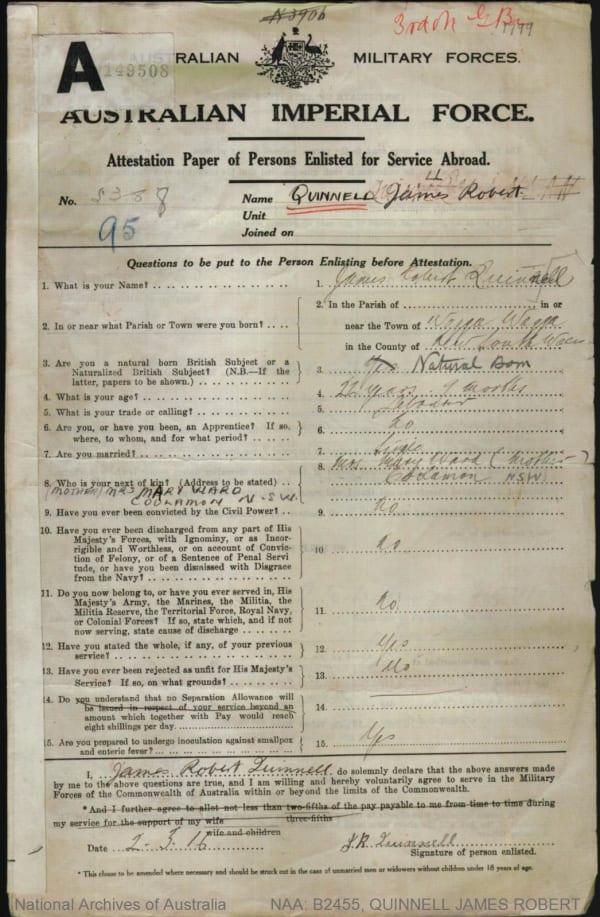 N3906
3rd
1999
A 149508
AUSTRALIAN MILITARY FORCES.
AUSTRALIAN IMPERIAL FORCE.
Attestation Paper of Persons Enlisted for Service Abroad.
No. Name QUINNELL James Robert
95 Unit
Joined on
Questions to be put to the Person Enlisting before Attestation.
1. What is your Name? 1. James Robert Quinnell
2. In or near what Parish or Town were you born? 2. In the Parish of in or
near the Town of Wagga Wagga
in the County of New South Wales
3. Are you a natural born British Subject or a
Naturalized British Subject? (N.B.—If the
latter, papers to be shown.) 3. Yes Natural Born
4. What is your age? 4. years months
5. What is your trade or calling? 5. Labourer
6. Are you, or have you been, an Apprentice? If so,
where, to whom, and for what period? 6. No
7. Are you married? 7. Single
8. Who is your next of kin? (Address to be stated) 8. Mrs. Mary Ward (mother
Coolamon NSW)
(MOTHER) MRS MARY WARD
COOLAMON N.S.W.
9. Have you ever been convicted by the Civil Power? 9. No
10. Have you ever been discharged from any part of His
Majesty's Forces, with Ignominy, or as Incor-
rigible and Worthless, or on account of Convic-
tion of Felony, or of a Sentence of Penal Servi
tude, or have you been dismissed with Disgrace
from the Navy? 10. No
11. Do you now belong to, or have you ever served in, His
Majesty's Army, the Marines, the Militia, the
Militia Reserve, the Territorial Force, Royal Navy,
or Colonial Forces? If so, state which, and if not
now serving, state cause of discharge 11. No
12. Have you stated the whole, if any, of your previous
service? 12. Yes
13. Have you ever been rejected as unfit for His Majesty's
Service? If so, on what grounds? 13. No
14. Do you understand that no Separation Allowance will
be issued in respect of your service beyond an
amount which together with Pay would reach
eight shillings per day. 14.
15. Are you prepared to undergo inoculation against smallpox
and enteric fever? 15. Yes
I, James Robert Quinnell do solemnly declare that the above answers made
by me to the above questions are true, and I am willing and hereby voluntarily agree to serve in the Military
Forces of the Commonwealth of Australia within or beyond the limits of the Commonwealth.
*And I further agree to allot not less than two-fifths of the pay payable to me from time to time during
three-fifths
my service for the support of my wife
wife and children
Date 2-3-16 J.R. Quinnell
Signature of person enlisted.
* This clause to be amended where necessary and should be struck out in the case of unmarried men or widowers without children under 18 years of age.
National Archives of Australia NAA: B2455, QUINNELL JAMES ROBERT